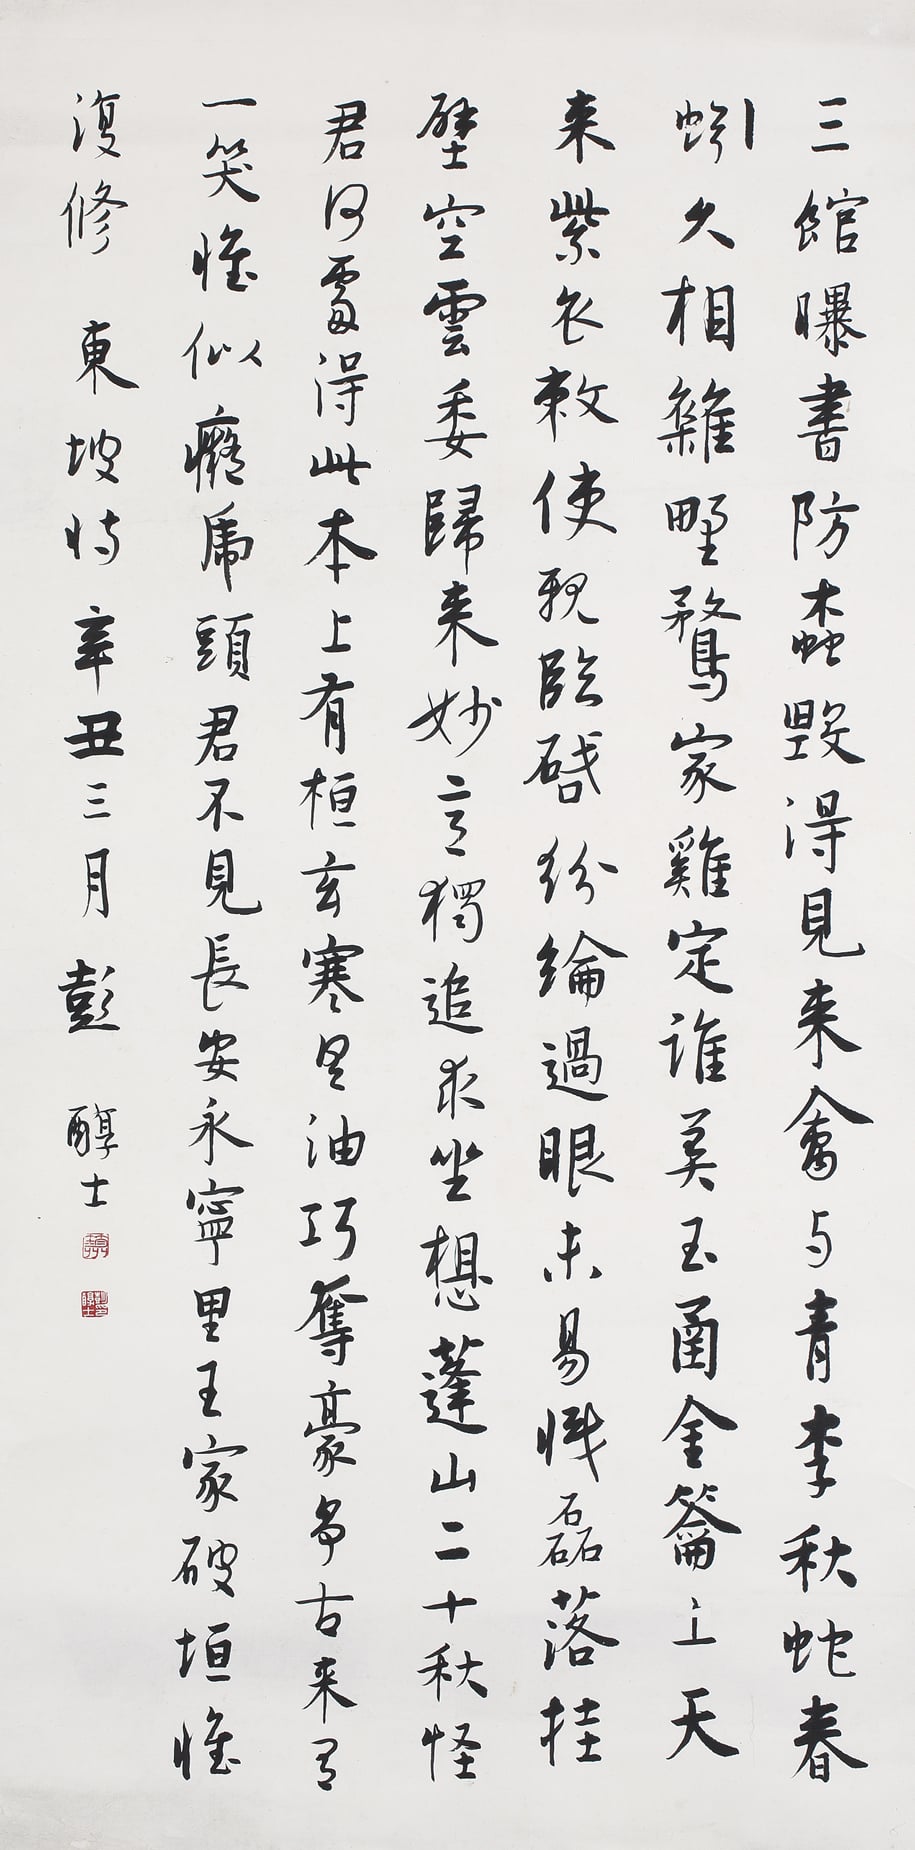 三館曝書防蠹毀得見来禽与青李秋蛇春
蚓久相雜野鶩家雞定誰美玉函金籥上天
来紫衣敕使親臨啓紛綸過眼未易識磊落挂
壁空雲委歸来妙意獨追求坐想蓬山二十秋怪
君何處得此本上有桓玄寒具油巧奪豪争古来有
一笑惟似癡虎頭君不見長安永寧里王家破垣惟
復修 東坡詩 辛丑三月 彭醇士